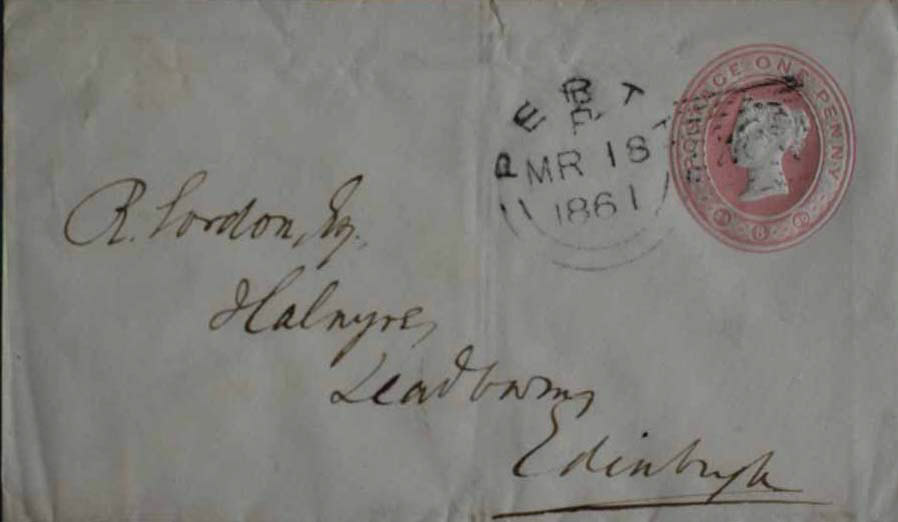 POSTAGE ONE PENNY
PERT
B
MR 18
1861
R. Gordon, Esq.
Halmyre,
Leadburn,
Edinburgh